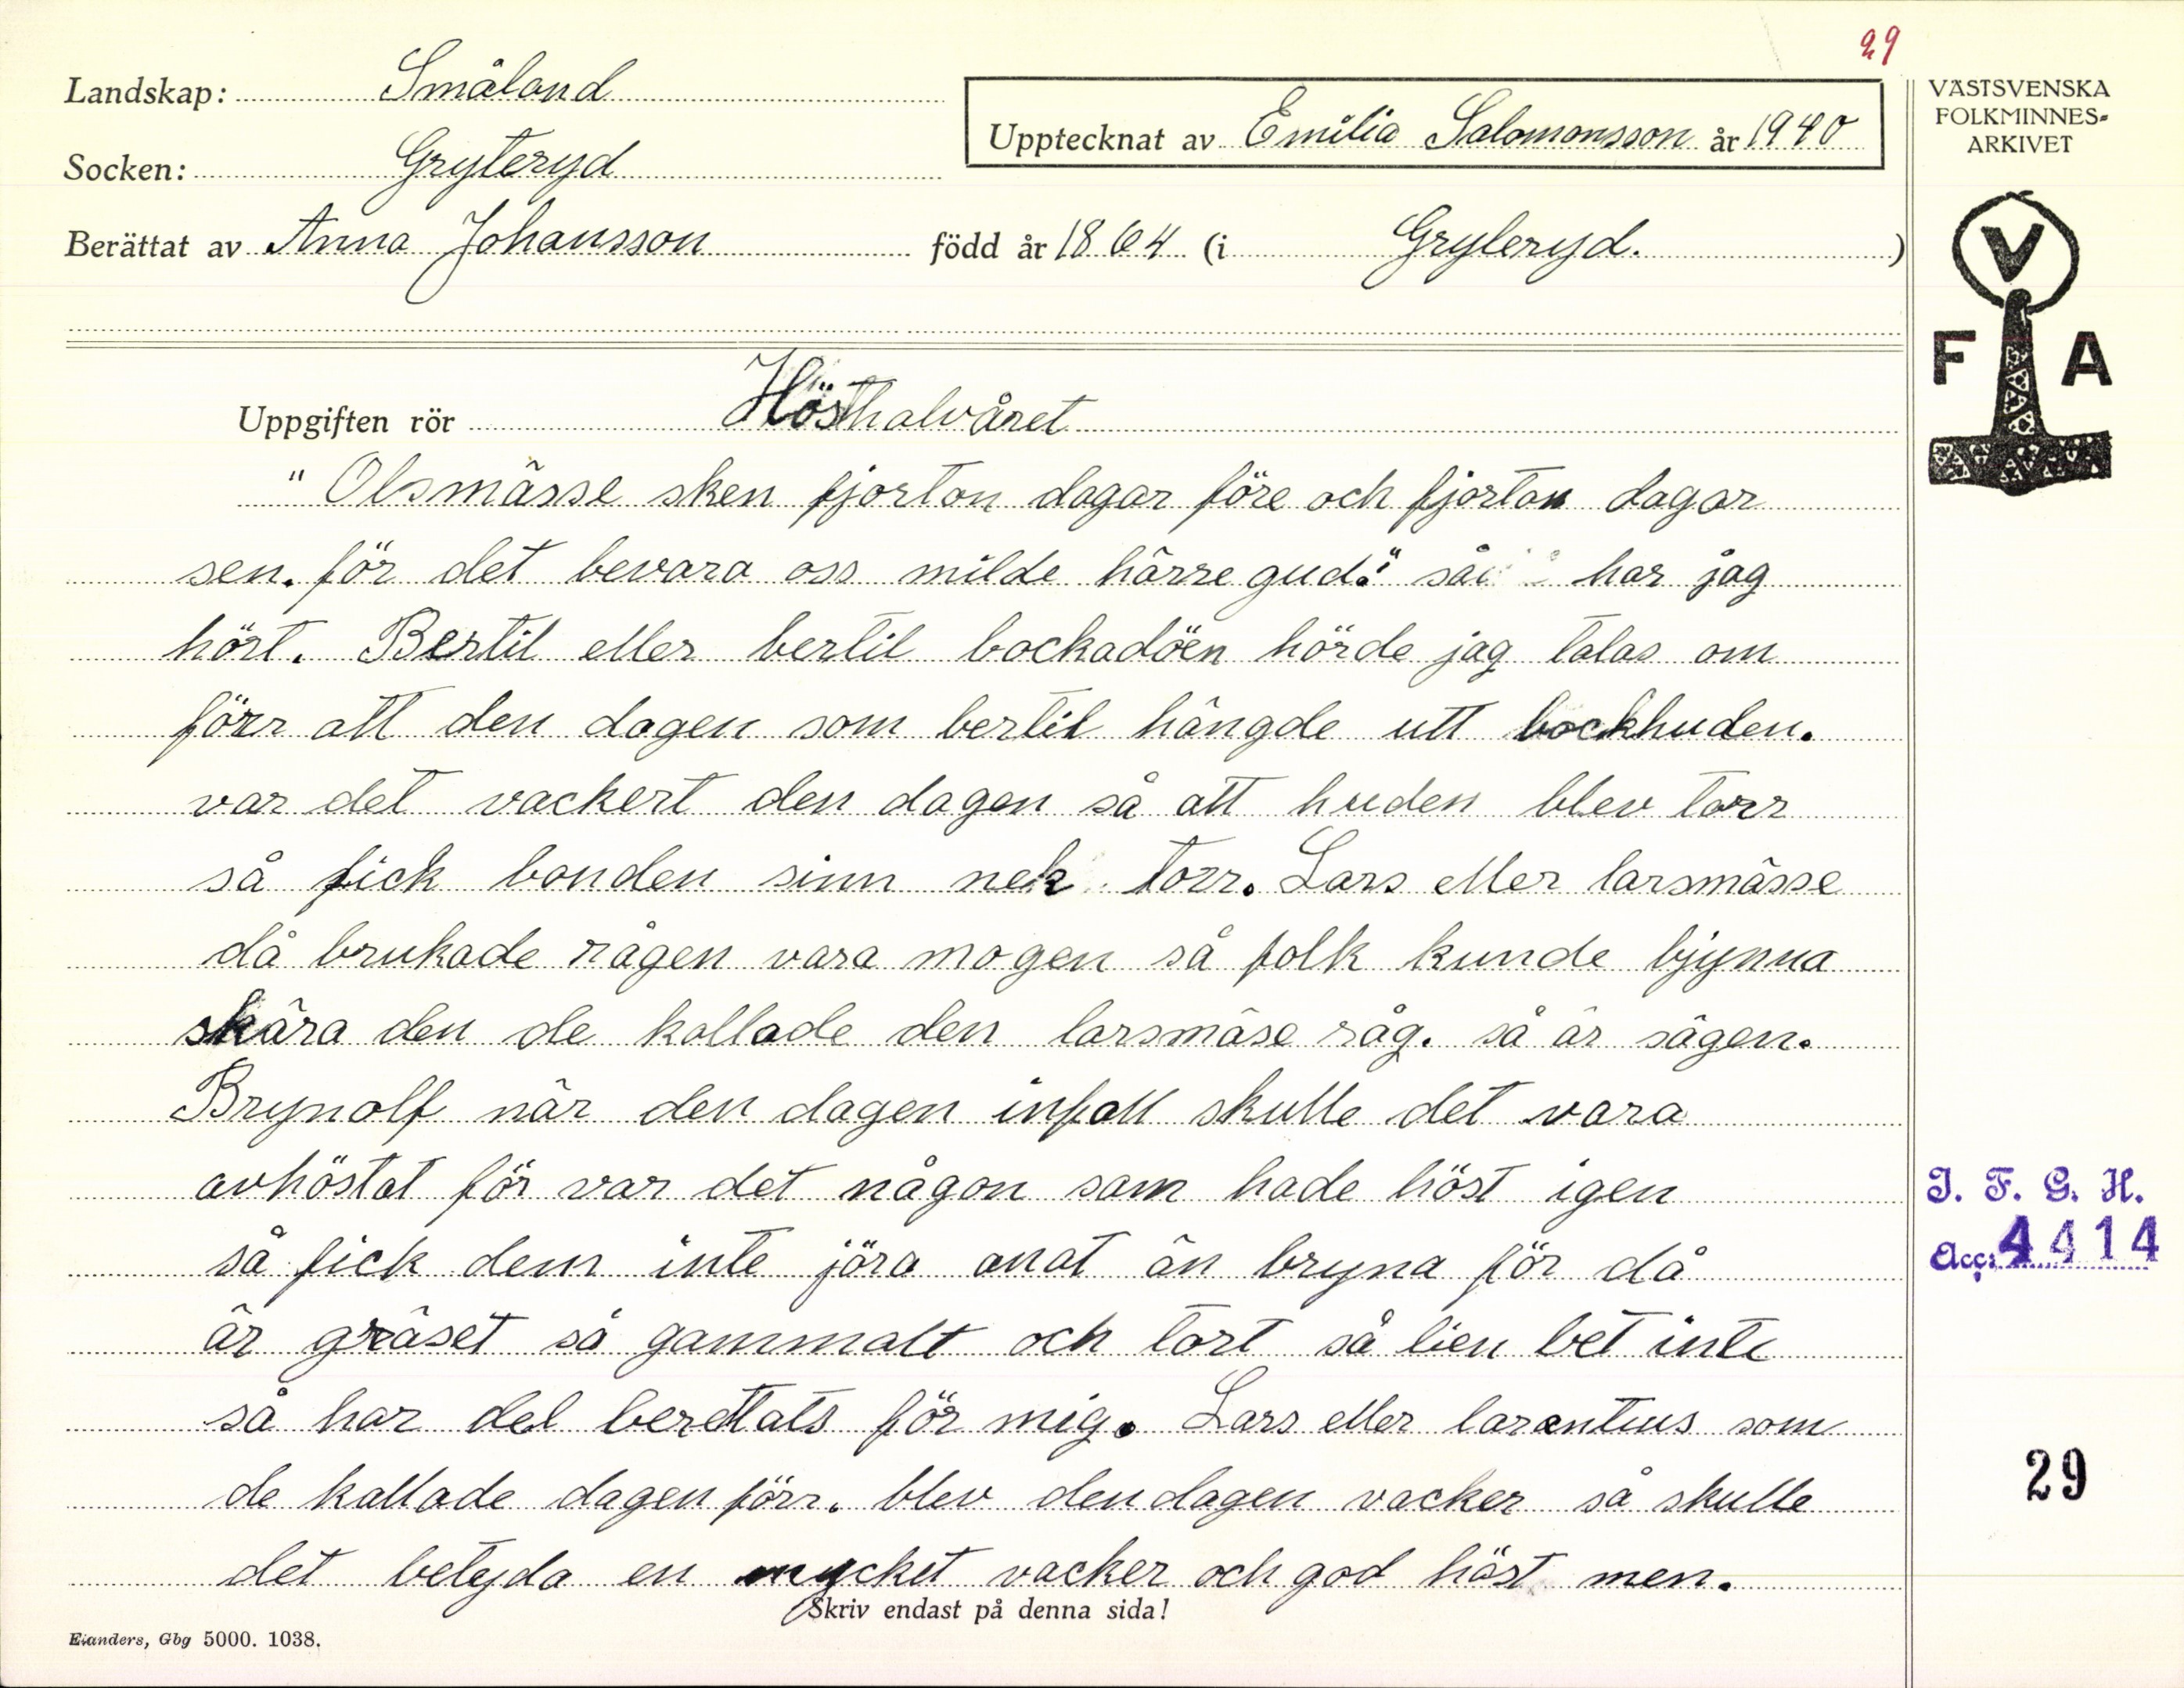 29
Landskap: Småland
Upptecknat av Emilia Salomonsson år 1940
VÄSTSVENSKA
FOLKMINNES-
ARKIVET
Socken: Gryteryd
Berättat av Anna Johansson född år 1864 (i Gryteryd.)
V
F A
Uppgiften rör Hösthalvåret
"Olsmässe sken fjorton dagar före och fjorton dagar
sen. för det bevara oss milde härre gud." så har jag
hört. Bertil eller bertil bockadöen hörde jag talas om
förr att den dagen som bertil hängde utt bockhuden.
var det vackert den dagen så att huden blev torr
så fick bonden sinn nek torr. Lars eller larsmässe
då brukade rågen vara mogen så folk kunde bjynna
skära den de kallade den larsmäse råg. så är sägen.
Brynolf när den dagen infall skulle det vara
avhöstat för var det någon som hade höst igen
så fick dem inte jöra anat än bryna för då
är gräset så gammalt och tort så lien bet inte
så har det berettats för mig. Lars eller larentius som
de kallade dagen förr. blev den dagen vacker så skulle
det betyda en mycket vacker och god höst men.
Skriv endast på denna sida!
Eianders, Gbg 5000. 1038.
I. F. G. H.
Acc: 4414
29